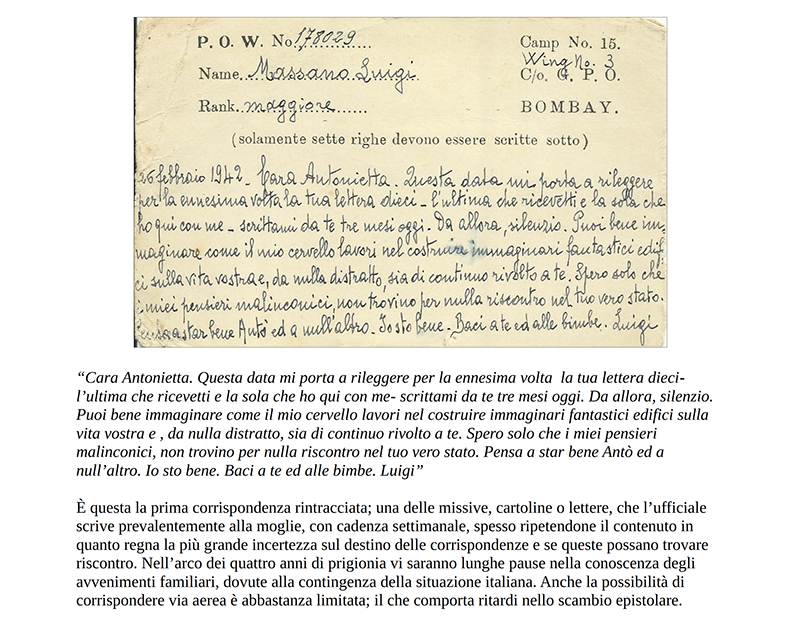 P. O. W. No 178029
Camp No. 15.
Wing No. 3
Name. Massano Luigi
C/o. G. P. O.
Rank. maggiore
BOMBAY.
(solamente sette righe devono essere scritte sotto)
26 febbraio 1942 - Cara Antonietta. Questa data mi porta a rileggere
per la ennesima volta la tua lettera dieci - l'ultima che ricevetti e la sola che
ho qui con me - scrittami da te tre mesi oggi. Da allora, silenzio. Puoi bene im-
maginare come il mio cervello lavori nel costruire immaginari fantastici edifi-
ci sulla vita vostra e, da nulla distratto, sia di continuo rivolto a te. Spero solo che
i miei pensieri malinconici, non trovino per nulla riscontro nel tuo vero stato.
Pensa a star bene Antò ed a null'altro. Io sto bene. Baci a te ed alle bimbe. Luigi
“Cara Antonietta. Questa data mi porta a rileggere per la ennesima volta la tua lettera dieci-
l’ultima che ricevetti e la sola che ho qui con me- scrittami da te tre mesi oggi. Da allora, silenzio.
Puoi bene immaginare come il mio cervello lavori nel costruire immaginari fantastici edifici sulla
vita vostra e , da nulla distratto, sia di continuo rivolto a te. Spero solo che i miei pensieri
malinconici, non trovino per nulla riscontro nel tuo vero stato. Pensa a star bene Antò ed a
null’altro. Io sto bene. Baci a te ed alle bimbe. Luigi”
È questa la prima corrispondenza rintracciata; una delle missive, cartoline o lettere, che l’ufficiale
scrive prevalentemente alla moglie, con cadenza settimanale, spesso ripetendone il contenuto in
quanto regna la più grande incertezza sul destino delle corrispondenze e se queste possano trovare
riscontro. Nell’arco dei quattro anni di prigionia vi saranno lunghe pause nella conoscenza degli
avvenimenti familiari, dovute alla contingenza della situazione italiana. Anche la possibilità di
corrispondere via aerea è abbastanza limitata; il che comporta ritardi nello scambio epistolare.